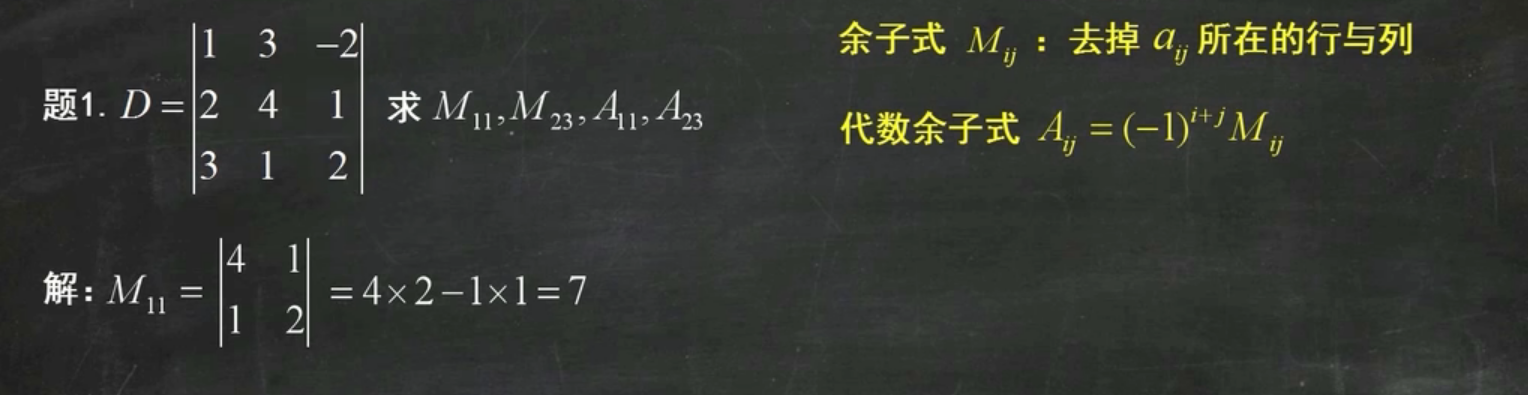 题1. D = |1 3 −2|
|2 4 1|
|3 1 2|
求 M₁₁, M₂₃, A₁₁, A₂₃
余子式 Mᵢⱼ : 去掉 aᵢⱼ 所在的行与列
代数余子式 Aᵢⱼ = (−1)ⁱ⁺ʲ Mᵢⱼ
解: M₁₁ = |4 1|
|1 2|
= 4×2−1×1=7